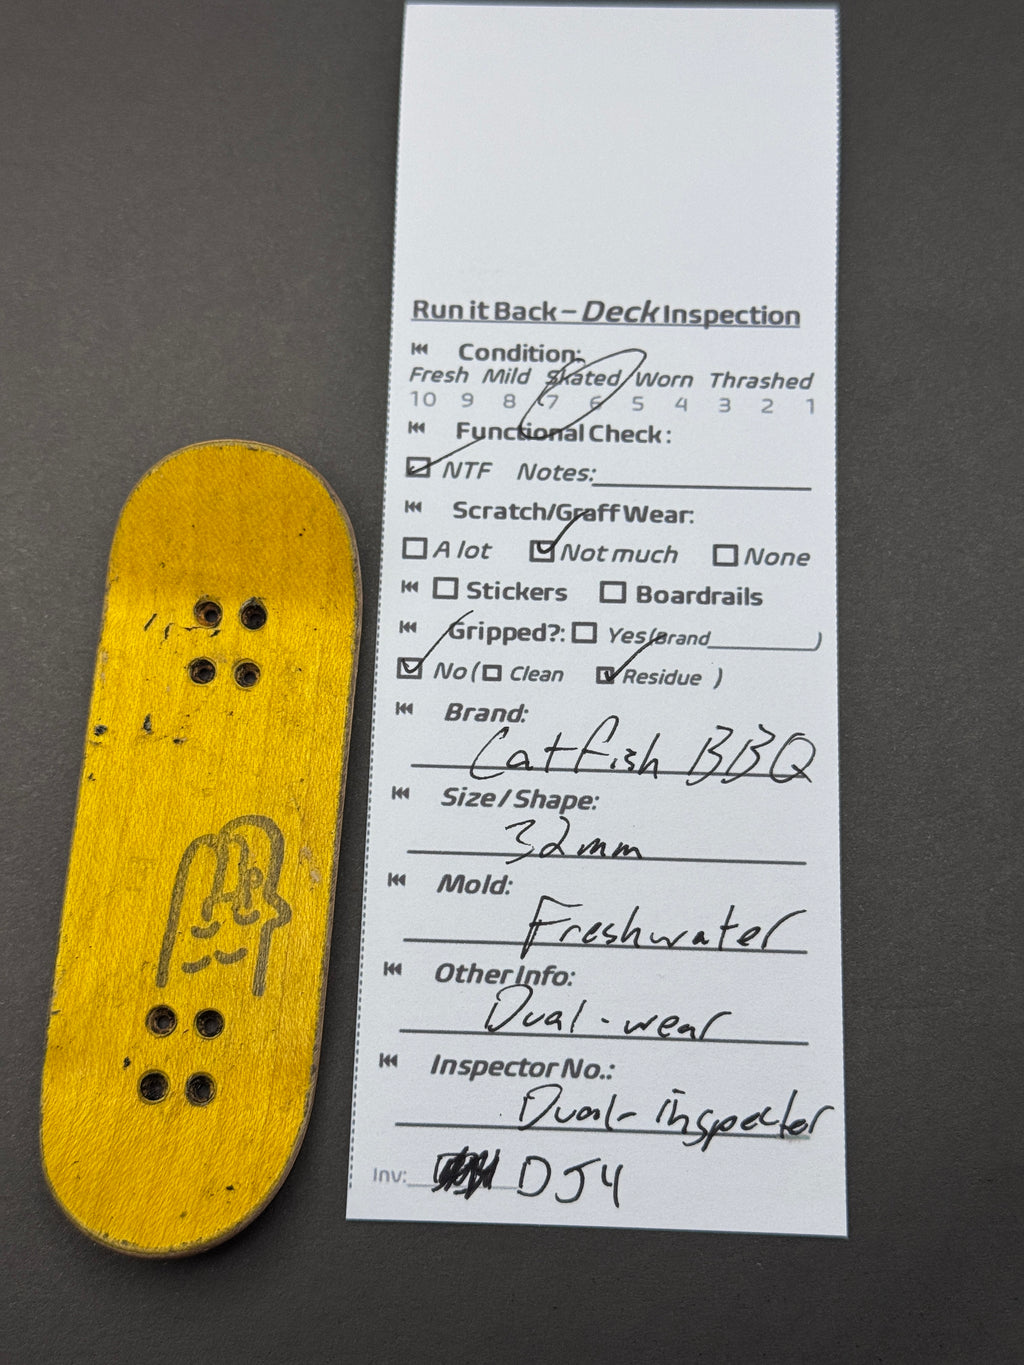 Run it Back – Deck Inspection
Condition:
Fresh Mild Skated Worn Thrashed
10 9 8 7 6 5 4 3 2 1
Functional Check:
NTF Notes:
Scratch/Graff Wear:
A lot Not much None
Stickers Boardrails
Gripped?: Yes(Brand )
No ( Clean Residue )
Brand:
Catfish BBQ
Size / Shape:
32mm
Mold:
Freshwater
Other Info:
Dual-wear
Inspector No.:
Dual-inspector
Inv: DJ4